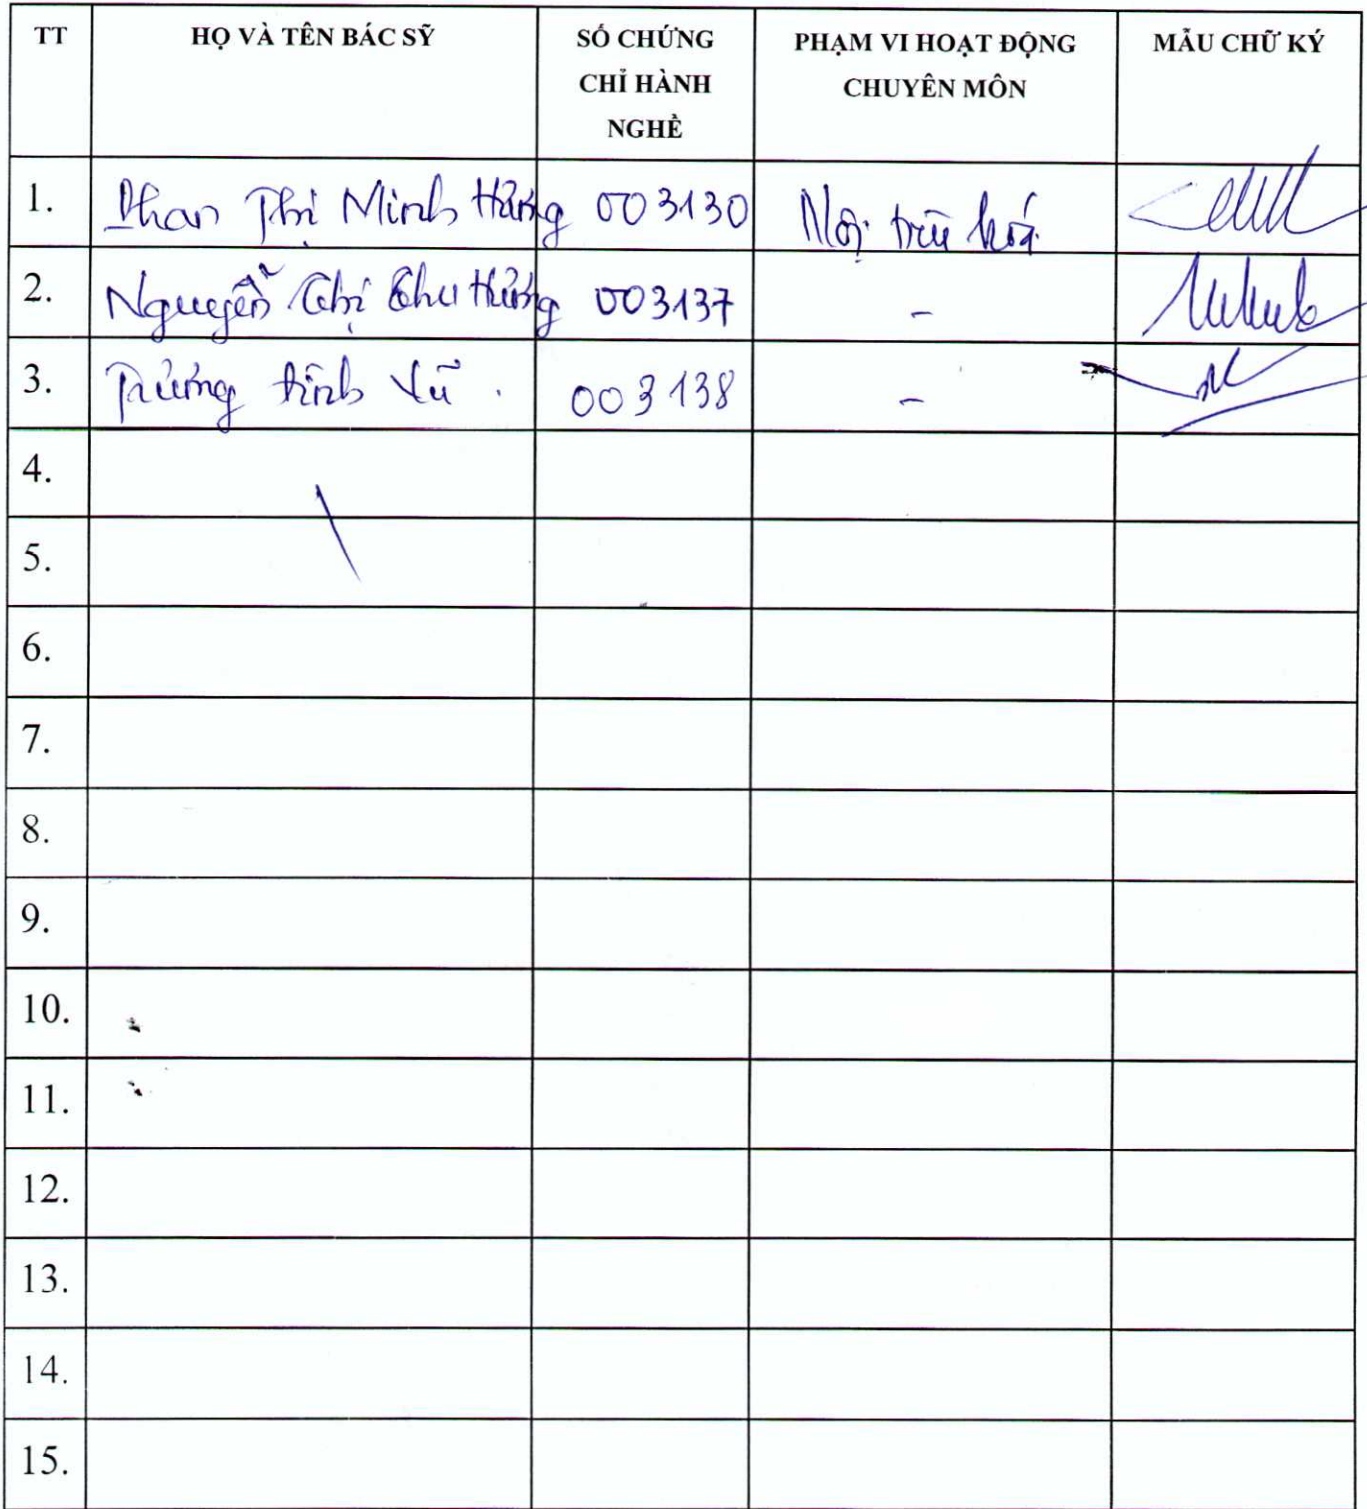 TT HỌ VÀ TÊN BÁC SỸ SỐ CHỨNG CHỈ HÀNH NGHỀ PHẠM VI HOẠT ĐỘNG CHUYÊN MÔN MẪU CHỮ KÝ
1. Phan Thị Minh Hằng 003130 Nội
2. Nguyễn Thị Thu Hường 003137 -
3. Trương Vũ 003138 -
4.
5.
6.
7.
8.
9.
10.
11.
12.
13.
14.
15.